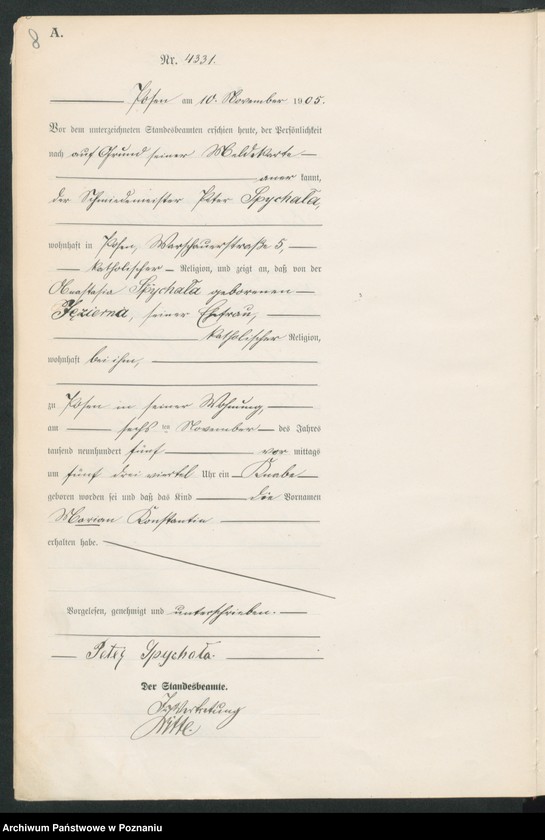 8 A.
Nr. 4331.
Posen am 10. November 1905.
Vor dem unterzeichneten Standesbeamten erschien heute, der Persönlichkeit
nach auf Grund seiner Meldekarte
aner kannt,
der Schmiedemeister Peter Spychała,
wohnhaft in Posen, Warschauerstraße 5,
katholischer Religion, und zeigt an, daß von der
Anastasia Spychała geborenen
Jezierna, seiner Ehefrau,
katholischer Religion,
wohnhaft bei ihm,
zu Posen in seiner Wohnung,
am sechsten November des Jahres
tausend neunhundert fünf vor mittags
um fünf drei viertel Uhr ein Knabe
geboren worden sei und daß das Kind die Vornamen
Marian Konstantin
erhalten habe.
Vorgelesen, genehmigt und unterschrieben.
Peter Spychała.
Der Standesbeamte.
In Vertretung
Witte.
Archiwum Państwowe w Poznaniu